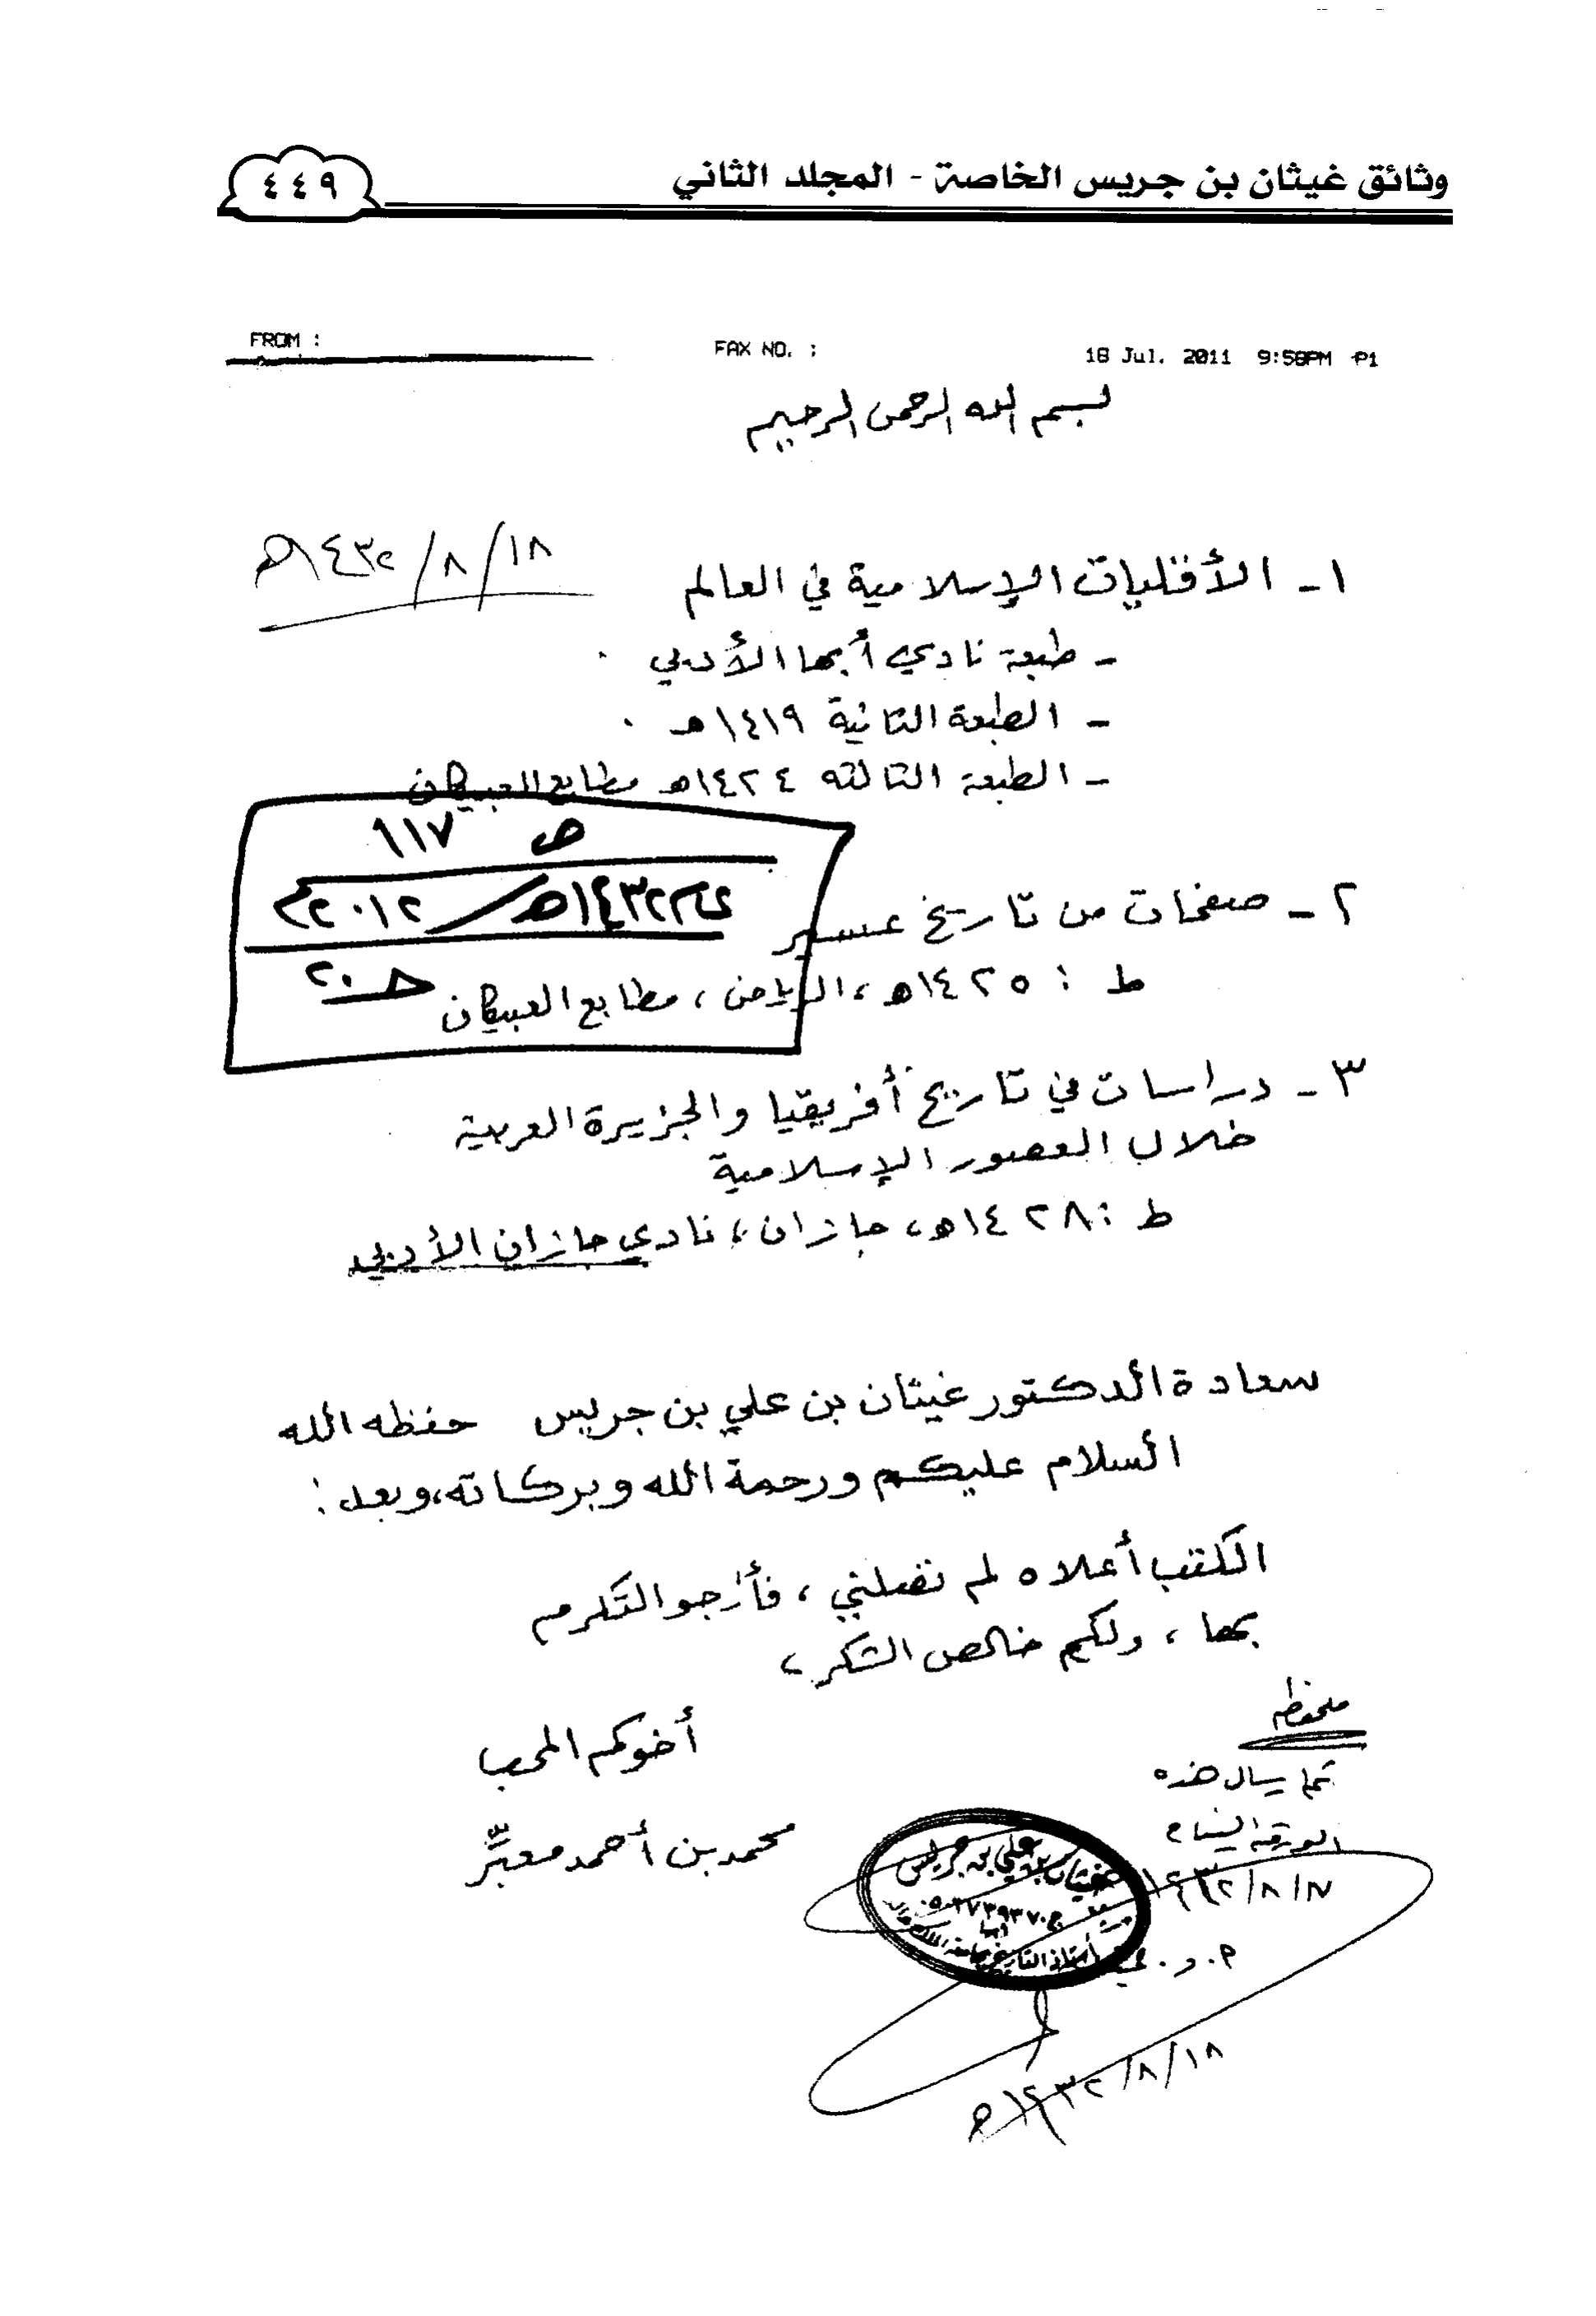 وثائق غيثان بن جريس الخاصة - المجلد الثاني
٤٤٩
FROM :
FAX NO. :
18 Jul. 2011 9:58PM P1
بسم الله الرحمن الرحيم
١٨/٨/١٤٣٢هـ
١- الأقليات الإسلامية في العالم
- طبعة نادي أبها الأدبي .
- الطبعة الثانية ١٤١٩هـ .
- الطبعة الثالثه ١٤٢٤هـ مطابع العبيكان
ص ١١٧
١٤٣٢هـ/٢٠١٢م
حـ ٢٠
٢- صفحات من تاريخ عسير
ط : ١٤٢٥هـ، الرياض، مطابع العبيكان
٣- دراسات في تاريخ أفريقيا والجزيرة العربية
خلال العصور الإسلامية
ط : ١٤٢٨هـ، جازان، نادي جازان الأدبي
سعادة الدكتور غيثان بن علي بن جريس حفظه الله
السلام عليكم ورحمة الله وبركاته، وبعد :
الكتب أعلاه لم تصلني، فأرجو التكرم
بها، ولكم خالص الشكر،
أخوكم المحب
محمد بن أحمد معبّر
ملحوظه
هذه
الورقة
١٧/٨/١٤٣٢
غيثان بن علي بن جريس
أبها
أستاذ التاريخ بجامعة الملك خالد
١٨/٨/١٤٣٢هـ